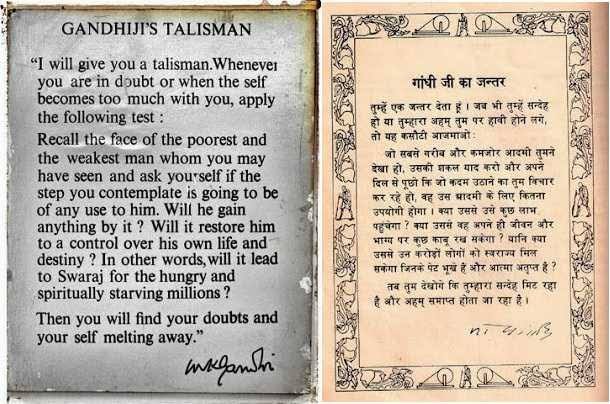 GANDHIJI'S TALISMAN
“I will give you a talisman.Whenever
you are in doubt or when the self
becomes too much with you, apply
the following test :
Recall the face of the poorest and
the weakest man whom you may
have seen and ask yourself if the
step you contemplate is going to be
of any use to him. Will he gain
anything by it ? Will it restore him
to a control over his own life and
destiny ? In other words,will it lead
to Swaraj for the hungry and
spiritually starving millions ?
Then you will find your doubts and
your self melting away.”
mkgandhi
गांधी जी का जन्तर
तुम्हें एक जन्तर देता हूं । जब भी तुम्हें सन्देह
हो या तुम्हारा अहम् तुम पर हावी होने लगे,
तो यह कसौटी आजमाओ:
जो सबसे गरीब और कमजोर आदमी तुमने
देखा हो, उसकी शकल याद करो और अपने
दिल से पूछो कि जो कदम उठाने का तुम विचार
कर रहे हो, वह उस आदमी के लिए कितना
उपयोगी होगा । क्या उससे उसे कुछ लाभ
पहुंचेगा ? क्या उससे वह अपने ही जीवन और
भाग्य पर कुछ काबू रख सकेगा ? यानि क्या
उससे उन करोड़ों लोगों को स्वराज्य मिल
सकेगा जिनके पेट भूखे हैं और आत्मा अतृप्त है ?
तब तुम देखोगे कि तुम्हारा सन्देह मिट रहा
है और अहम् समाप्त होता जा रहा है ।